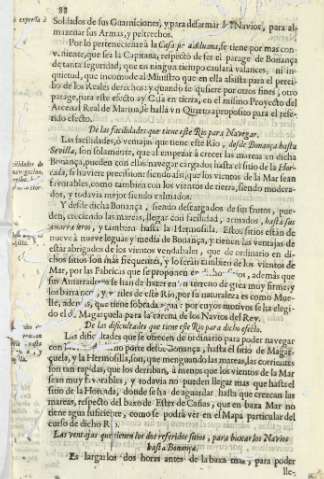 88
Soldados de sus Guarniciones, y para desarmar Navios, para al-
mazenar sus Armas, y pertrechos.
Por lo perteneciente à la Casa de Aduana, se tiene por mas con-
veniente, que sea la Capitana, respecto de ser el parage de Bonança
de tanta seguridad, que en ningun tiempo causarà valances, ni in-
quietud, que incomode al Ministro que en ella assista para el preci-
bo de los Reales derechos: y quando se quisiere por otros fines, otro
parage, para este efecto, y Casa en tierra, en el mismo Proyecto del
Arcenal Real de Marina, se halla vn Quarto apropòsito para el refe-
rido efecto.
De las facilidades que tiene este Rio para Navegar.
Las facilidades, ò ventajas que tiene este Rio, desde Bonança hasta
Sevilla, son solamente, que al empezar à crecer las mareas en dicha
Bonança, pueden con ellas navegar cargados hasta el sitio de la Hor-
cada, si huviere precision: siendo assi, que los vientos de la Mar sean
favorables, como tambien con los vientos de tierra, siendo modera-
dos, y todavia mejor siendo calmados.
Y desde dicha Bonança, siendo descargados de sus frutos, pue-
den, creciendo las mareas, llegar con facilidad, armados, hasta
y tambien hasta la Hermosilla. Estos sitios estàn de
nueve à nueve leguas y media de Bonança, y tienen las ventajas de
estàr abrigados de los vientos vendabales, que de ordinario en di-
chos sitios son mas frequentes, y lo seràn tambien de los vientos de
Mar, por las Fabricas que se proponen en sitios, además que
sus Amarradero se han de hazer en terreno de greda muy firme; y
los barrancos, y de este Rio, por su naturaleza es como Mue-
lle, además, que tiene sobrada agua: por cuyos motivos se ha elegi-
do el de Magarçuela para la carena de los Navios del Rey.
De las dificultades que tiene este Rio para dicho efecto.
Las dificultades que se ofrecen de ordinario para poder navegar
con porte desde Bonança, hasta el sitio de Magar-
çuela, y la Hermosilla, son, que menguando las mareas, las corrientes
son tan rapidas, que los derriban, à menos que los vientos de la Mar
sean muy favorables, y todavia no pueden llegar mas que hasta el
sitio de la Horcada, donde se ha de aguardar hasta que crezcan las
mareas, respecto del baxo de Ester de Casas, que en baxa Mar no
tiene agua suficiente, como se podrà vèr en el Mapa particular del
curso de dicho Rio.
Las ventajas que tienen los dos referidos sitios, para bòcar los Navios
hasta Bonança.
Es largarlos dos horas antes de la baxa mar, para poder
lle-